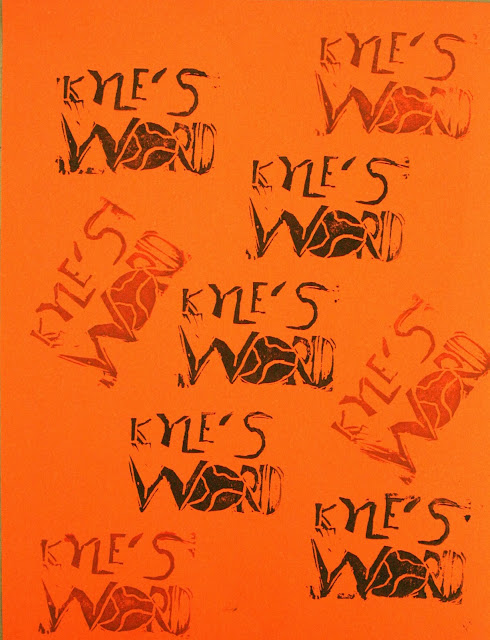 KYLE'S
WORLD
KYLE'S
WORLD
KYLE'S
WORLD
KYLE'S
WORLD
KYLE'S
WORLD
KYLE'S
WORLD
KYLE'S
WORLD
KYLE'S
WORLD
KYLE'S
WORLD